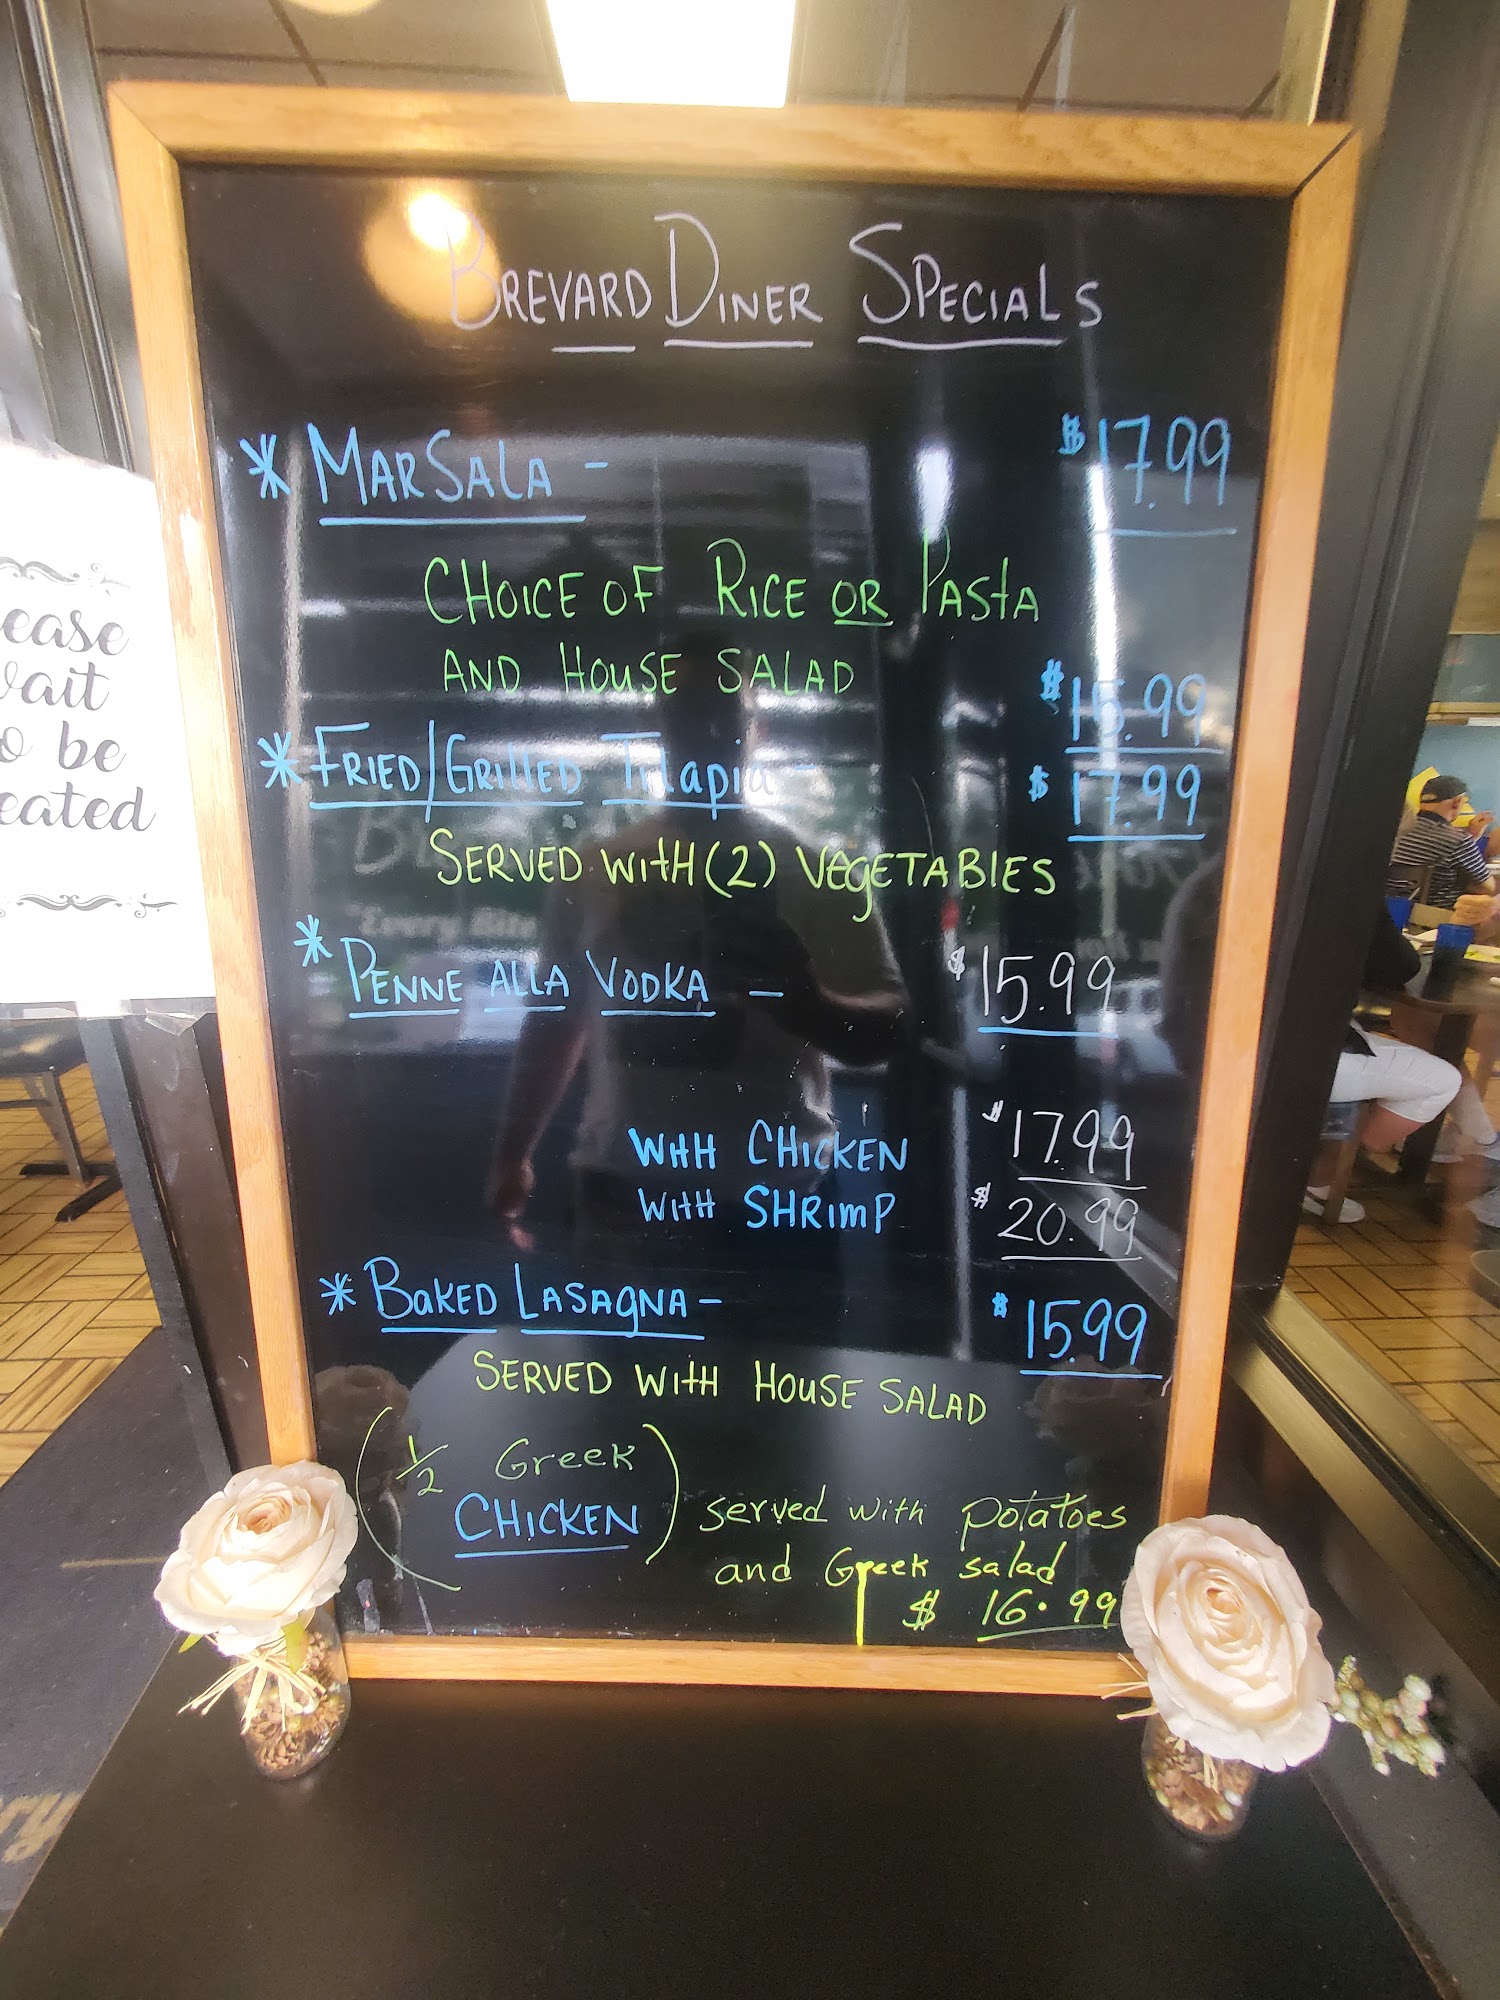 BREVARD DINER SPECIALS
* MARSALA - $17.99
CHOICE OF RICE OR PASTA
AND HOUSE SALAD
$15.99
* FRIED/GRILLED TILAPIA - $17.99
SERVED WITH (2) VEGETABLES
* PENNE ALLA VODKA - $15.99
WITH CHICKEN $17.99
WITH SHRIMP $20.99
* BAKED LASAGNA - $15.99
SERVED WITH HOUSE SALAD
(1/2 Greek
CHICKEN) served with potatoes
and Greek salad
$16.99
ease
ait
o be
eated